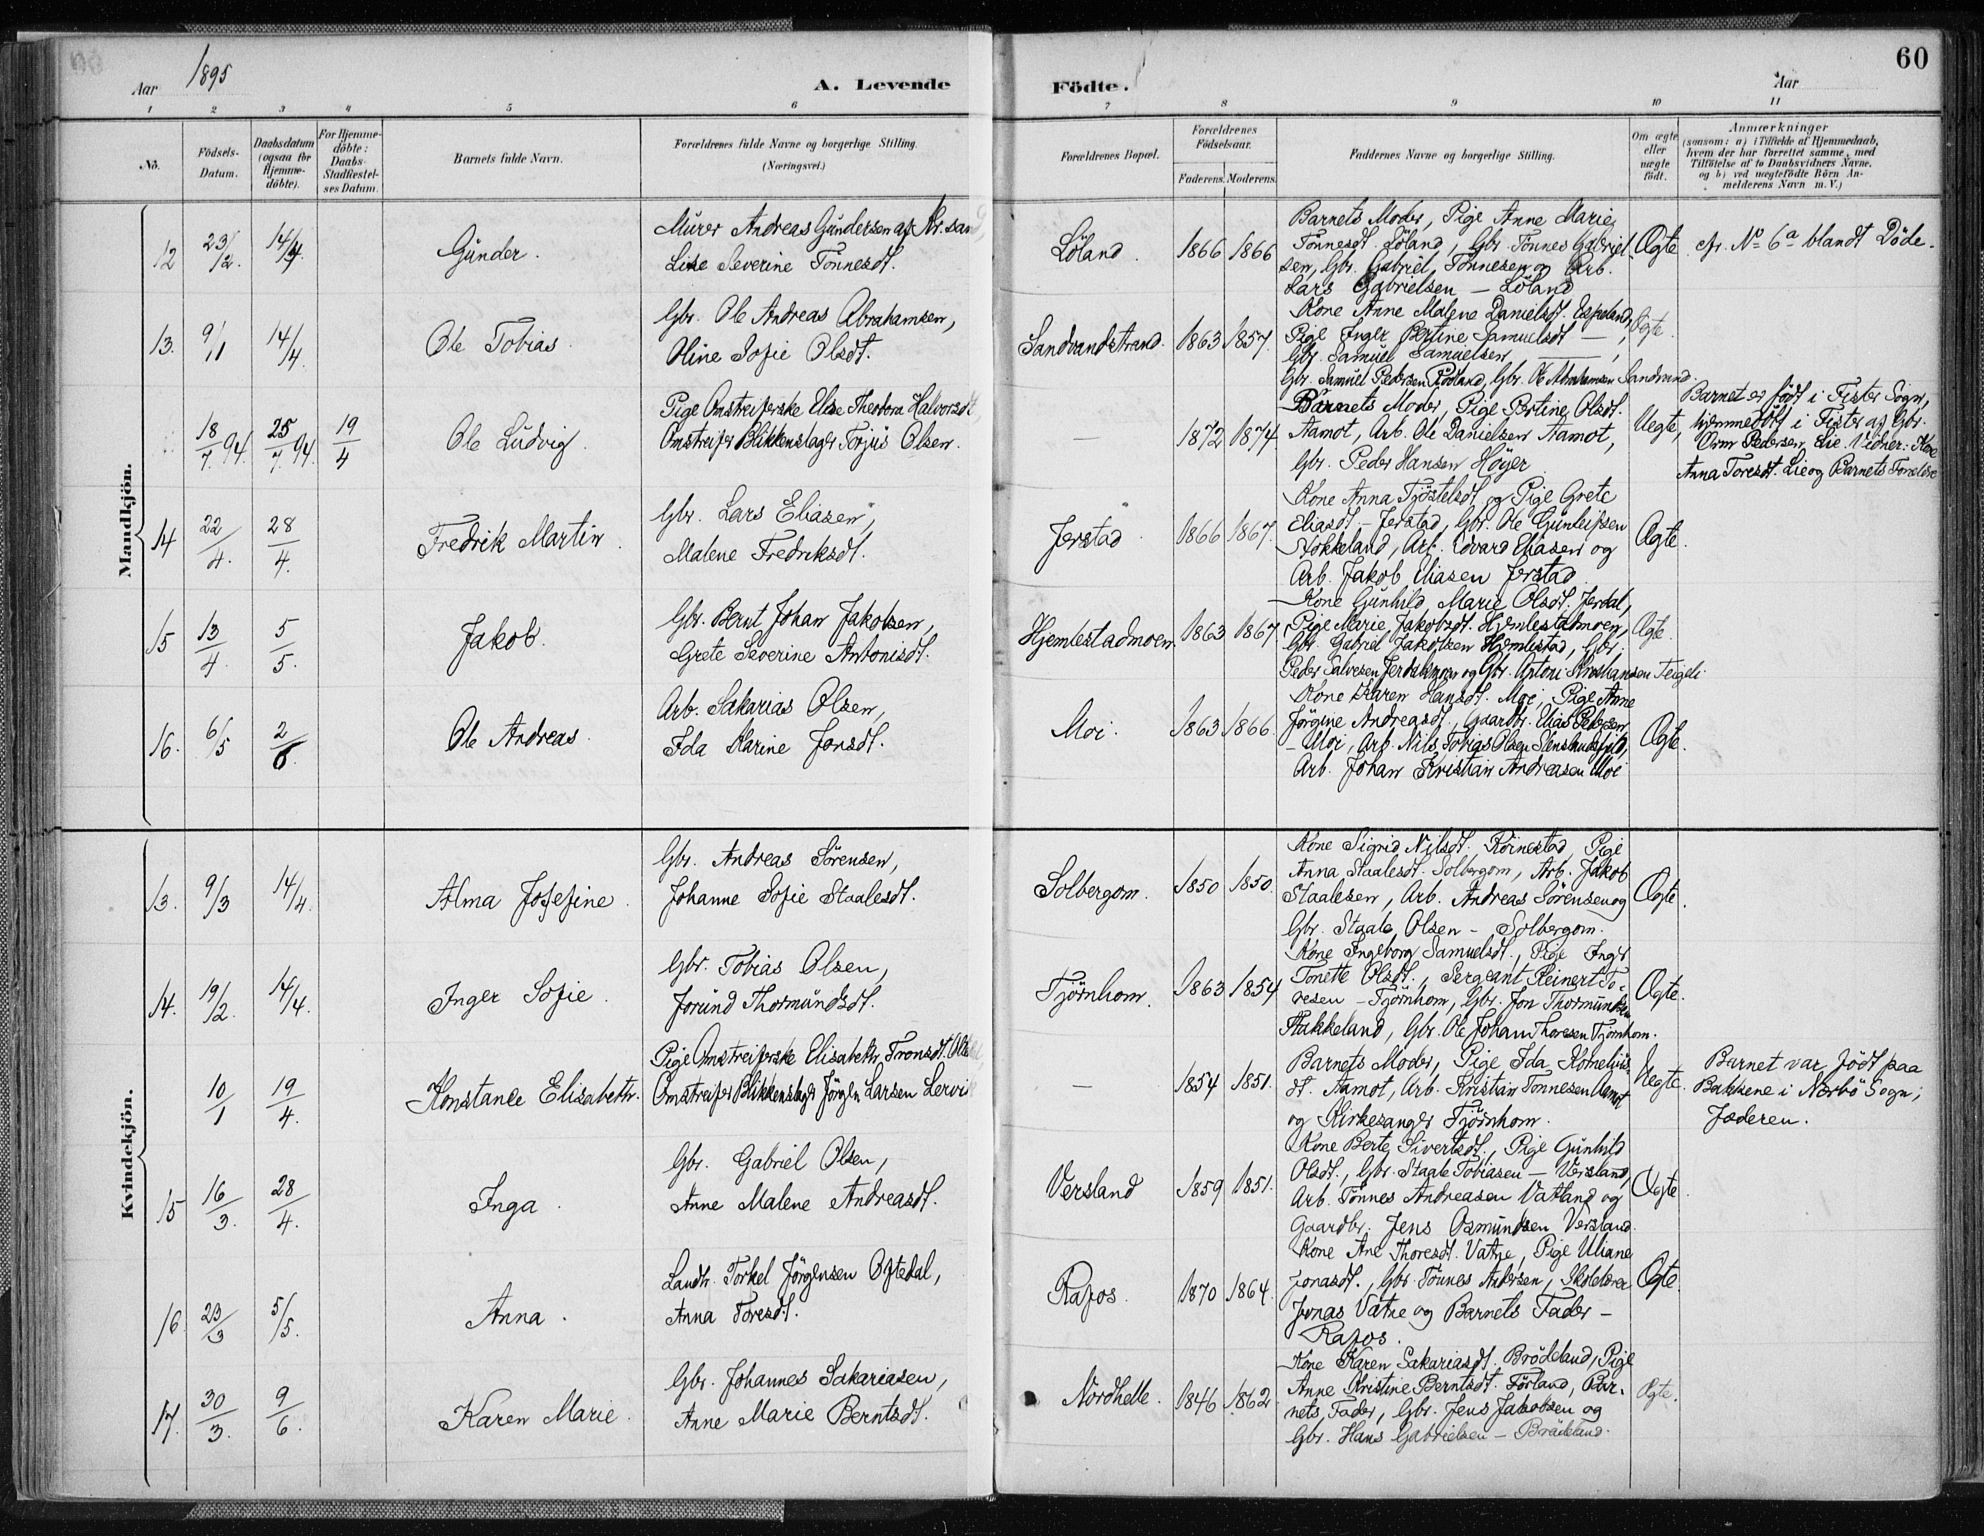 60
Aar 1895
A. Levende Födte.
Aar
1 2 3 4 5 6 7 8 9 10 11
No.
Födsels-Datum.
Daabsdatum (ogsaa for Hjemme-döbte).
For Hjemme-döbte: Daabs-Stadfæstel-ses Datum.
Barnets fulde Navn.
Forældrenes fulde Navne og borgerlige Stilling. (Næringsvei.)
Forældrenes Bopæl.
Forældrenes Födselsaar.
Faderens. Moderens.
Faddernes Navne og borgerlige Stilling.
Om ægte eller uægte födt.
Anmærkninger
(saasom: a) i Tilfælde af Hjemmedaab, hvem der har forrettet samme, med Tilföielse af to Daabsvidners Navne, og b) ved uægtefödte Börn An-melderens Navn m. V.)
Mandkjön.
12 23/2. 14/4 Gunder.
Murer Andreas Gundersen af Kr.sand,
Lise Severine Tönnesdt.
Löland. 1866 1866
Barnets Moder, Pige Anne Marie
Tönnesdt. Löland, Gbr. Tönnes Gabriel-
sen, Gbr. Gabriel Tönnesen og Arb.
Lars Gabrielsen — Löland
Ægte. cfr. No 6a blandt Döde.
13. 9/11 14/4 Ole Tobias.
Gbr. Ole Andreas Abrahamsen,
Oline Sofie Olsdt.
Sandvandstrand. 1863 1857.
Kone Anne Malene Danielsdt. Espeland,
Pige Inger Bertine Samuelsdt —,
Gbr. Samuel Samuelsen —,
Gbr. Samuel Pedersen Rödland, Gbr. Ole Abrahamsen Sandvand.
Ægte.
18/7 94. 25/7 94. 19/4 Ole Ludvig.
Pige Omstreiferske Else Theodora Halvorsdt
Omstreifer Blikkenslager Torjus Olsen.
— 1872 1874.
Barnets Moder, Pige Bertine Olsdt.
Aamot, Arb. Ole Danielsen Aamot,
Gbr. Peder Hansen Höyer
Uegte,
Barnet er födt i Fister Sogn,
hjemmedöbt i Fister af Gbr.
Orm Pedersen Lie. Vidner: Kone
Anna Toresdt. Lie og Barnets Forældre
14 22/4. 28/4. Fredrik Martin.
Gbr. Lars Eliasen,
Malene Fredriksdt.
Jerstad. 1866 1867.
Kone Anna Tjöstelsdt. og Pige Grete
Eliasdt — Jerstad, Gbr. Ole Gunleifsen
Stokkeland, Arb. Edvard Eliasen og
Arb. Jakob Eliasen Jerstad.
Ægte.
15 13/4. 5/5. Jakob.
Gbr. Bernt Johan Jakobsen,
Grete Severine Antonisdt.
Hjemlestadmoen. 1863 1867.
Kone Gunhild Marie Olsdt. Jerdal,
Pige Marie Jakobsdt. Hjemlestadmoen,
Gbr. Gabriel Jakobsen Hjemlestad, Gbr.
Peder Salvesen Jerdalsmoen og Gbr. Antoni Kristiansen Feigeli
Ægte.
16. 6/5 2/6. Ole Andreas.
Arb. Sakarias Olsen,
Ida Karine Jonsdt.
Moi. 1863 1866.
Kone Karen Hansdt. Moi, Pige Anne
Jörgine Andreasdt., Gaardbr. Elias Pedersen
— Moi, Arb. Nils Tobias Olsen
Arb. Johan Kristian Andreasen Moi
Ægte.
Kvindekjön.
13. 9/3 14/4. Alma Josefine.
Gbr. Andreas Sörensen,
Johanne Sofie Staalesdt.
Solbergom. 1850 1850.
Kone Sigrid Nilsdt. Körnestad, Pige
Anna Staalesdt. Solbergom, Arb. Jakob
Staalesen, Arb. Andreas Sörensen og
Gbr. Staale Olsen — Solbergom.
Ægte.
14. 19/2. 14/4. Inger Sofie.
Gbr. Tobias Olsen,
Jorund Thormundsdt.
Tjörnhom. 1863 1854
Kone Ingeborg Samuelsdt., Pige Inger
Tonette Olsdt., Sergeant Reinert To-
resen — Tjörnhom, Gbr. Jon Thormundsen
Stakkeland, Gbr. Ole Johan Thoresen Tjörnhom.
Ægte.
10/1 19/4. Konstance Elisabeth.
Pige Omstreiferske Elisabeth Tronsdt.
Omstreifer Blikkenslager Jörgen Larsen Lervik
— 1854 1851.
Barnets Moder, Pige Ida Kornelius-
dt. Aamot, Arb. Kristian Tönnesen Aamot
og Kirkesanger Tjörnhom.
Uegte.
Barnet var födt paa
Bakkene i Nærbö Sogn,
Jæderen.
15 16/3. 28/4. Inga.
Gbr. Gabriel Olsen,
Anne Malene Andreasdt.
Versland 1859 1851.
Kone Berte Sivertsdt., Pige Gunhild
Olsdt., Gbr. Staale Tobiasen — Versland,
Arb. Tönnes Andreasen Vatland og
Gaardbr. Jens Osmundsen Versland.
Ægte.
16. 23/3 5/5. Anna.
Landh. Torkel Jörgensen Oftedal,
Anna Toresdt.
Rafos. 1870 1864.
Kone Ane Thoresdt. Vatne, Pige Uliane
Jonasdt., Gbr. Tönnes Andersen, Skolelærer
Jonas Vatne og Barnets Fader —
Rafos.
Ægte.
17. 30/3. 9/6. Karen Marie.
Gbr. Johannes Sakariasen,
Anne Marie Berntsdt.
Nordhelle. 1846 1862.
Kone Karen Sakariasdt. Brödeland, Pige
Anne Kristine Berntsdt. Förland, Bar-
nets Fader, Gbr. Jens Jakobsen og
Gbr. Hans Gabrielsen — Brödeland.
Ægte.